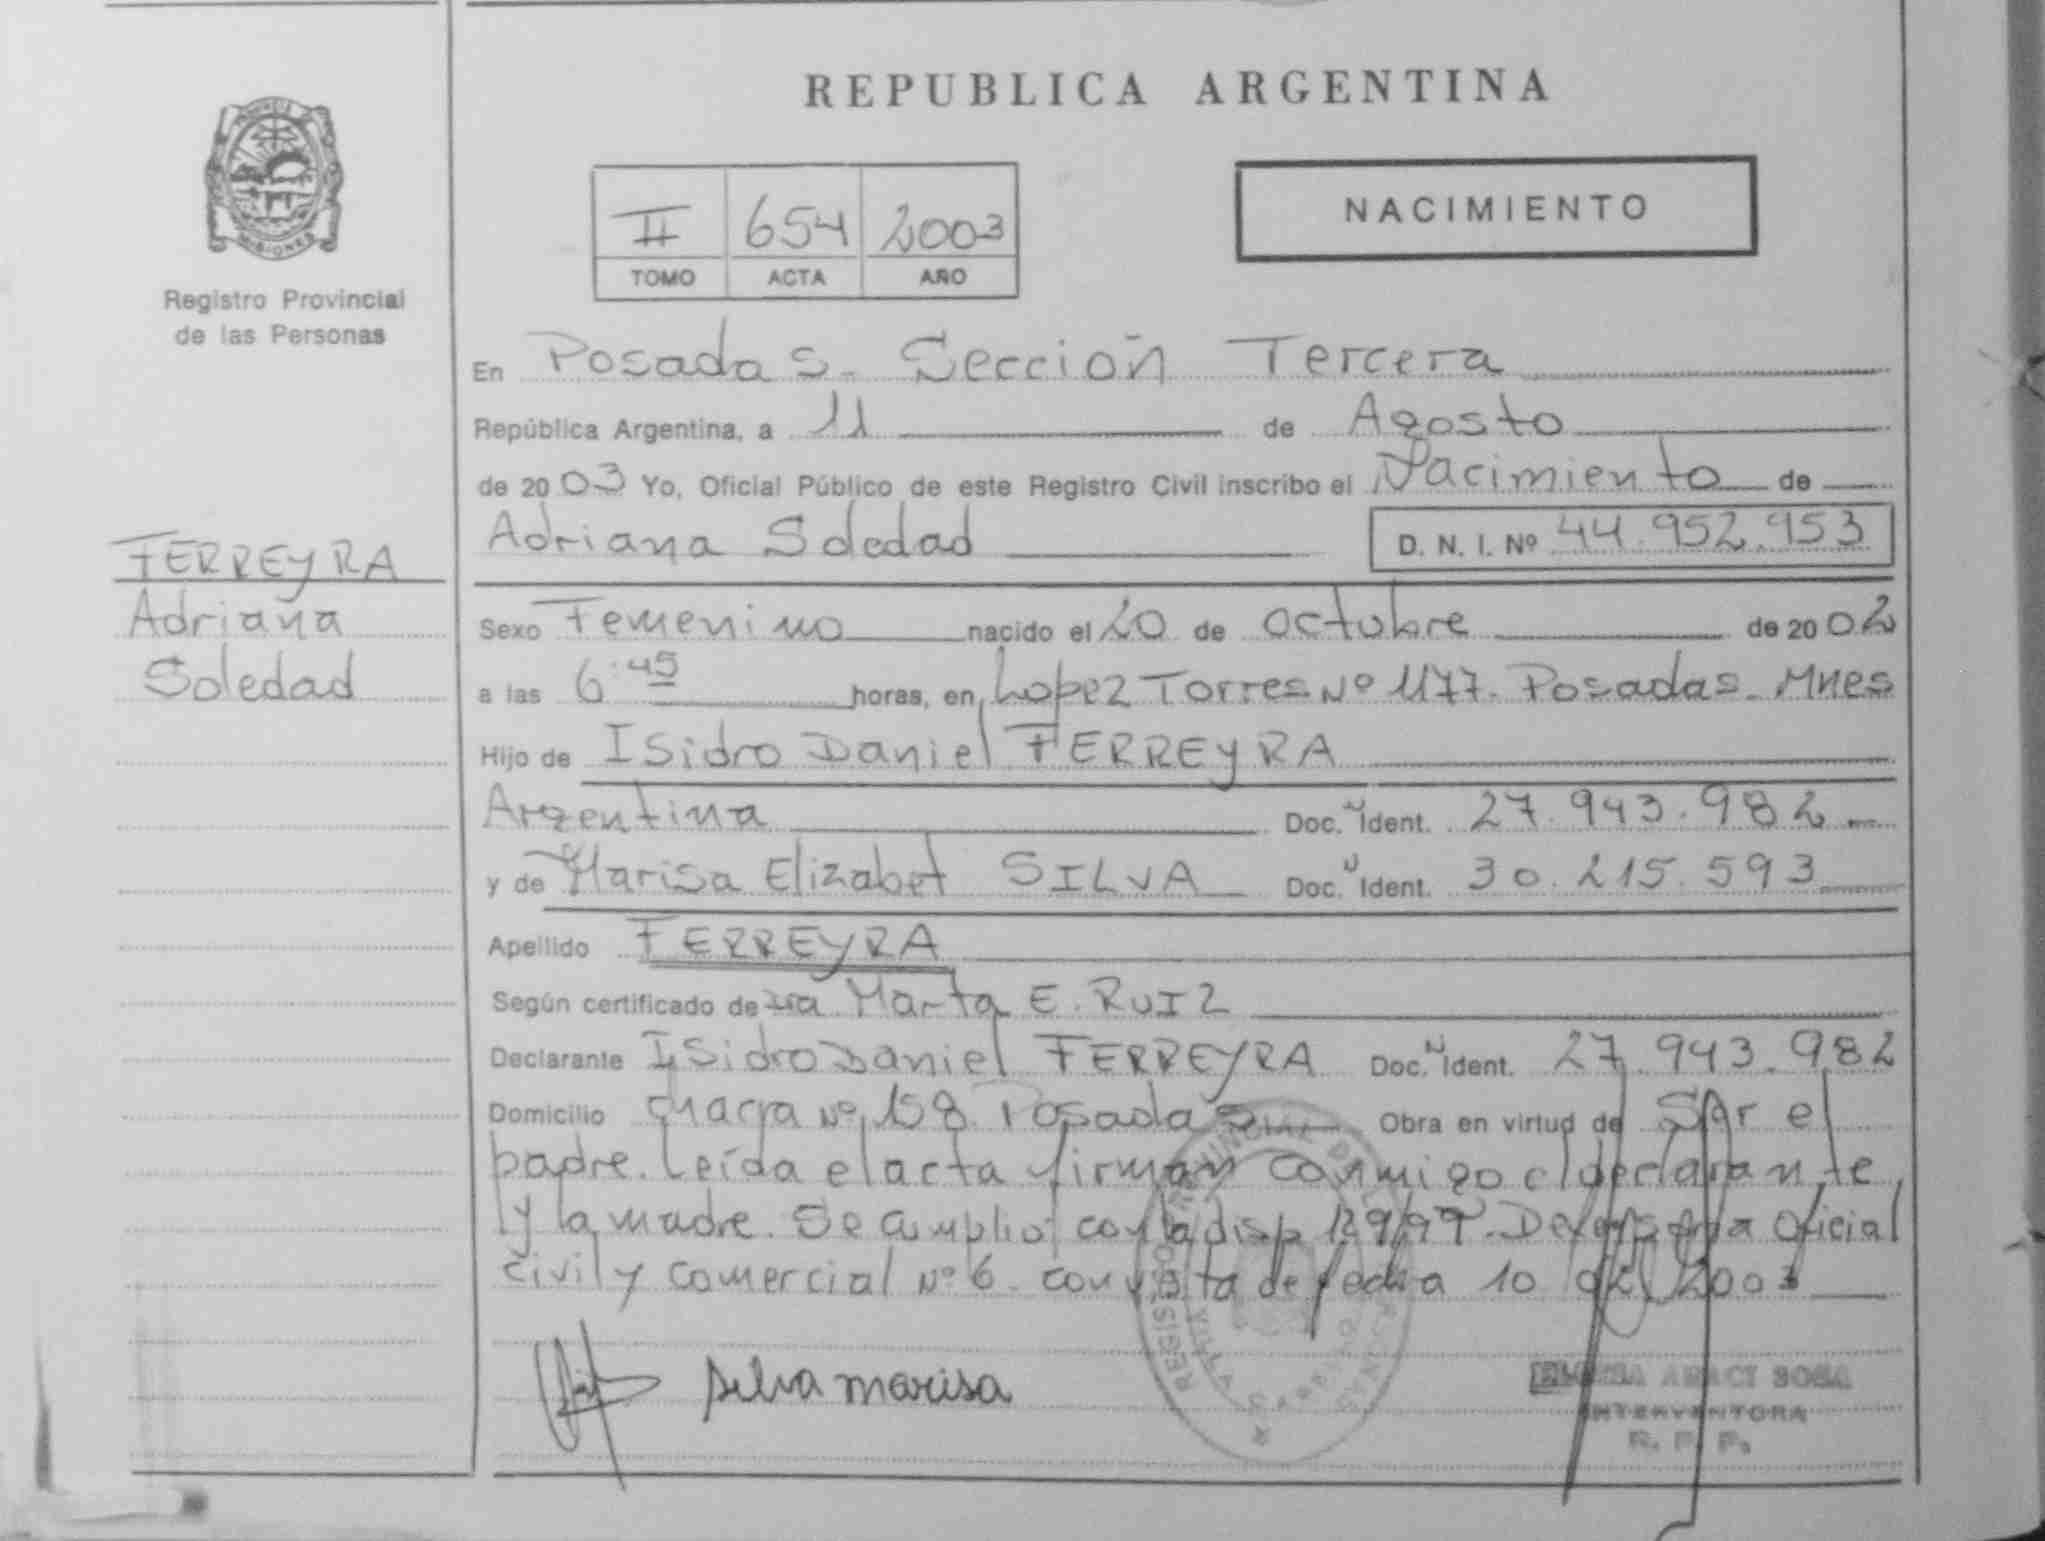 REPUBLICA ARGENTINA
PROVINCIA
MISIONES
Registro Provincial
de las Personas
NACIMIENTO
II 654 2003
TOMO ACTA AÑO
En Posadas. Sección Tercera
República Argentina, a 11 de Agosto
de 2003 Yo, Oficial Público de este Registro Civil inscribo el Nacimiento de
Adriana Soledad D. N. I. Nº 44.952.953
FERREYRA
Adriana
Soledad
Sexo Femenino nacido el 20 de octubre de 2002
a las 6:45 horas, en Lopez Torres Nº 1177. Posadas. Mnes
Hijo de Isidro Daniel FERREYRA
Argentina Doc. N Ident. 27.943.982
y de Marisa Elizabet SILVA Doc. N Ident. 30.215.593
Apellido FERREYRA
Según certificado de Marta E. RUIZ
Declarante Isidro Daniel FERREYRA Doc. N Ident. 27.943.982
Domicilio chacra Nº 158 Posadas Obra en virtud de SAr el
padre. Leída el acta firman conmigo el declarante
y la madre. Se cumplio con la disp 129/99. Defensoria Oficial
civil y comercial Nº 6. con vista de fecha 10 2003
silva marisa
ARACI SOSA
INTERVENTORA
R. P. P.